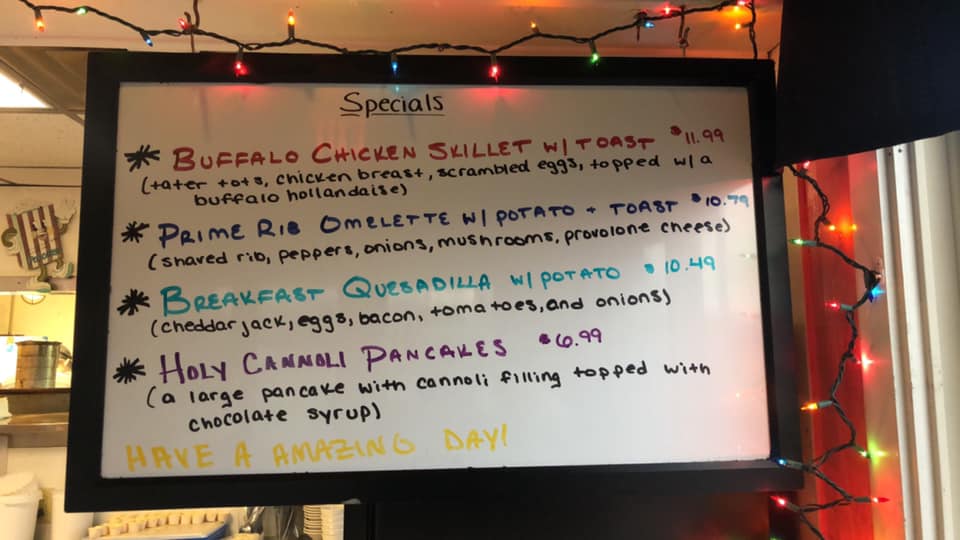 Specials
* BUFFALO CHICKEN SKILLET W/ TOAST $11.99
(tater tots, chicken breast, scrambled eggs, topped w/ a
buffalo hollandaise)
* PRIME RIB OMELETTE W/ POTATO + TOAST $10.79
(shaved rib, peppers, onions, mushrooms, provolone cheese)
* BREAKFAST QUESADILLA W/ POTATO $10.49
(cheddar jack, eggs, bacon, tomatoes, and onions)
* HOLY CANNOLI PANCAKES $6.99
(a large pancake with cannoli filling topped with
chocolate syrup)
HAVE A AMAZING DAY!